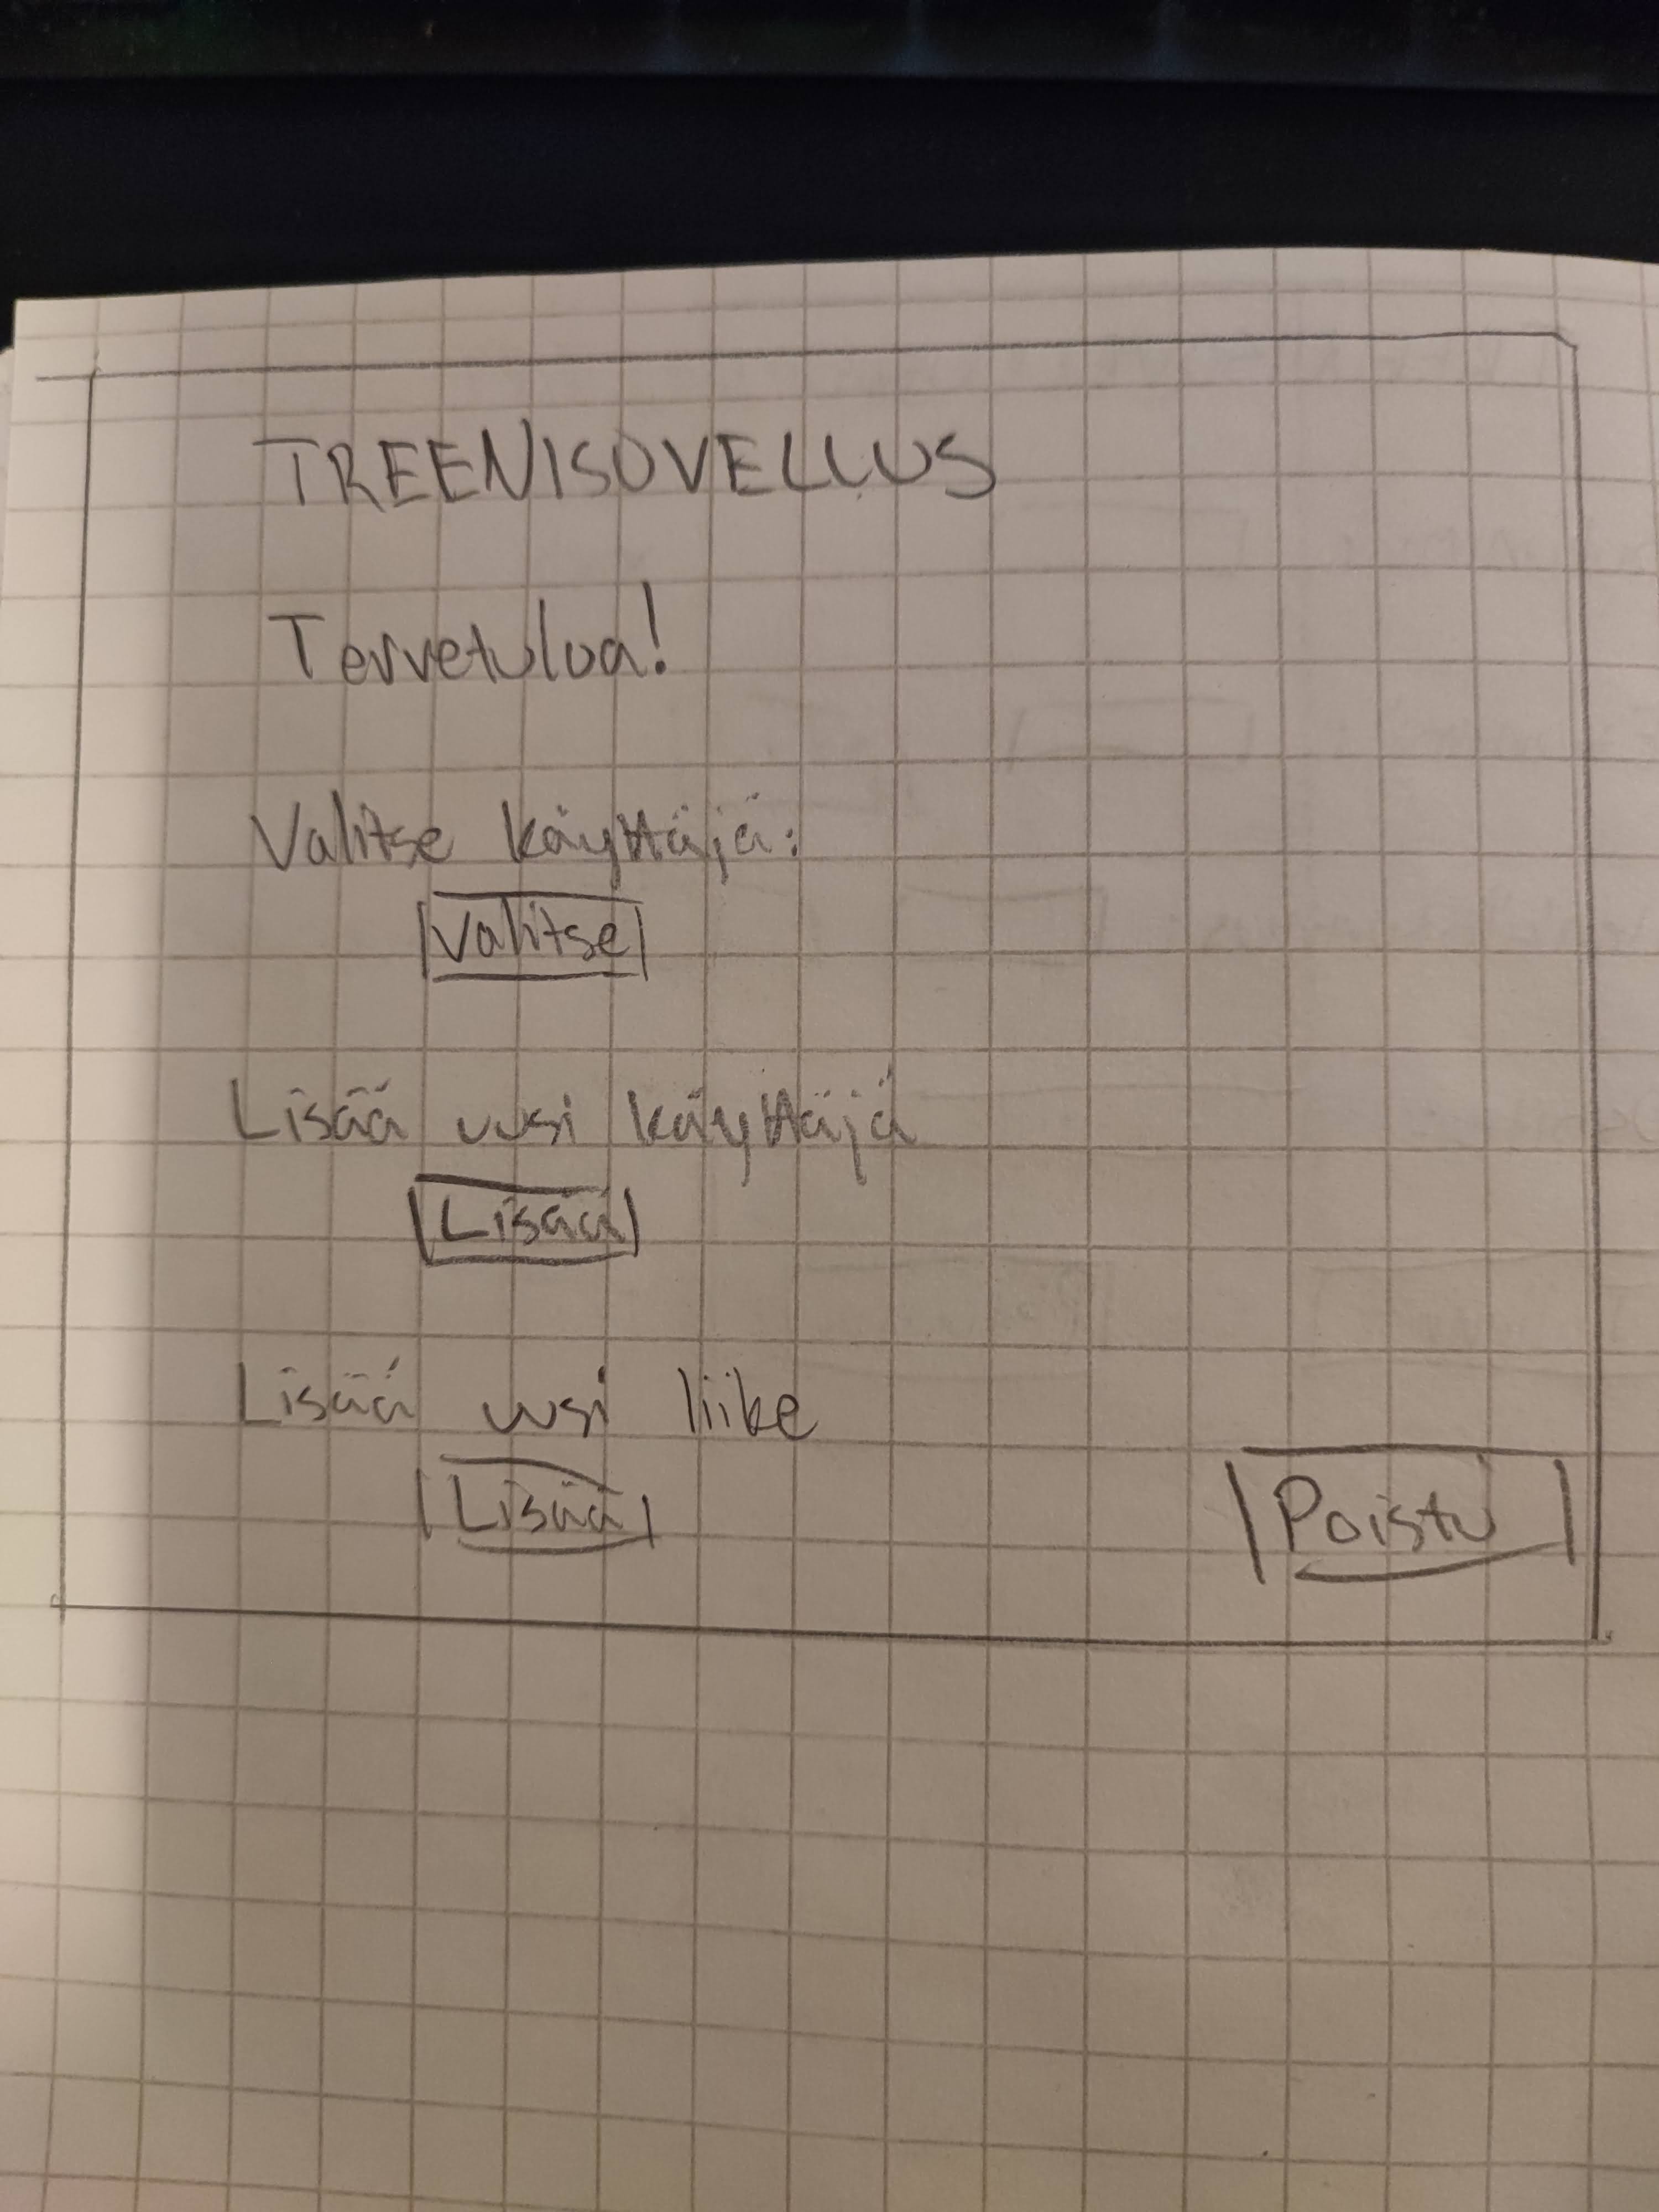 TREENISOVELLUS
Tervetuloa!
Valitse käyttäjä:
Valitse
Lisää uusi käyttäjä
Lisää
Lisää uusi liike
Lisää
Poistu